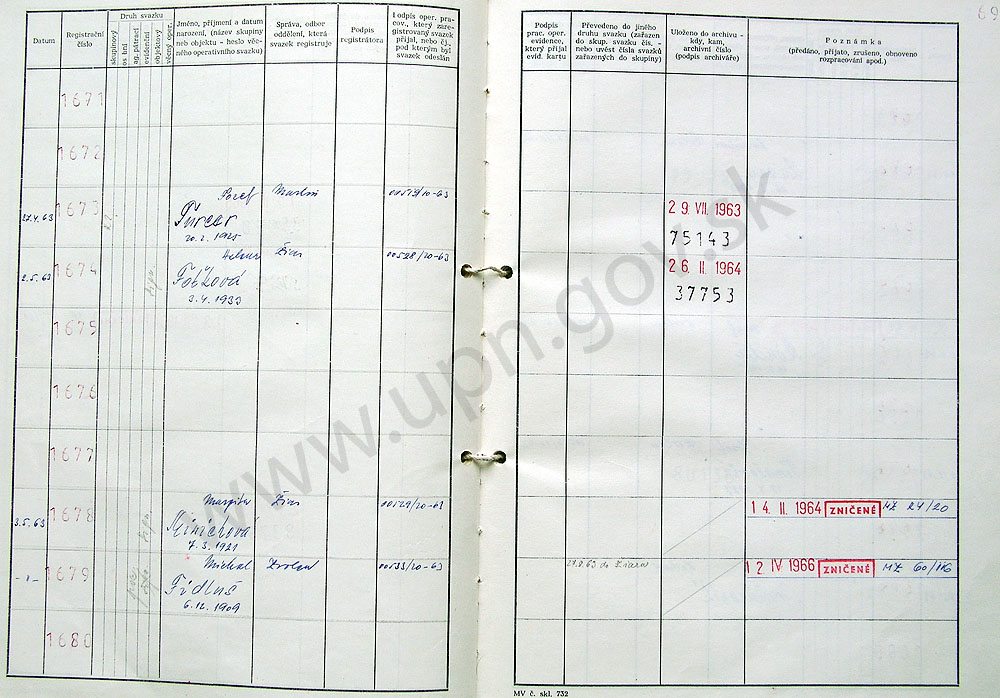 69
Datum
Registrační číslo
Druh svazku
skupinový
os bní
ag. pátrací
evidenční
objektový
věcný oper.
Jméno, příjmení a datum
narození, (název skupiny
neb objektu - heslo věc-
ného operativního svazku)
Správa, odbor
oddělení, která
svazek registruje
Podpis
registrátora
Podpis oper. pra-
cov., který zare-
gistrovaný svazek
přijal, nebo čj.,
pod kterým byl
svazek odeslán
Podpis
prac. oper.
evidence,
který přijal
evid. kartu
Převedeno do jiného
druhu svazku (zařazen
do skup. svazku čís. -
nebo uvést čísla svazků
zařazených do skupiny)
Uloženo do archivu -
kdy, kam,
archivní číslo
(podpis archiváře)
Poznámka
(předáno, přijato, zrušeno, obnoveno
rozpracování apod.)
1671
1672
27.4.63 1673 Jozef Martin 00519/20-63
Turčar
20.2.1925
29. VII. 1963
75143
2.5.63 1674 Helena Žiar 00528/20-63
3.4.1933
26. II. 1964
37753
1675
1676
1677
3.5.63 1678 Margita Žiar 00529/20-63
Miničkova
7.3.1921
14. II. 1964 ZNIČENÉ MZ 24/20
-"- 1679 Michal Zvolen 00533/20-63
Fidluš
6.12.1909
27.8.63 do Žiaru
12 IV 1966 ZNIČENÉ MZ 60/116
1680
MV č. skl. 732
www.upn.gov.sk